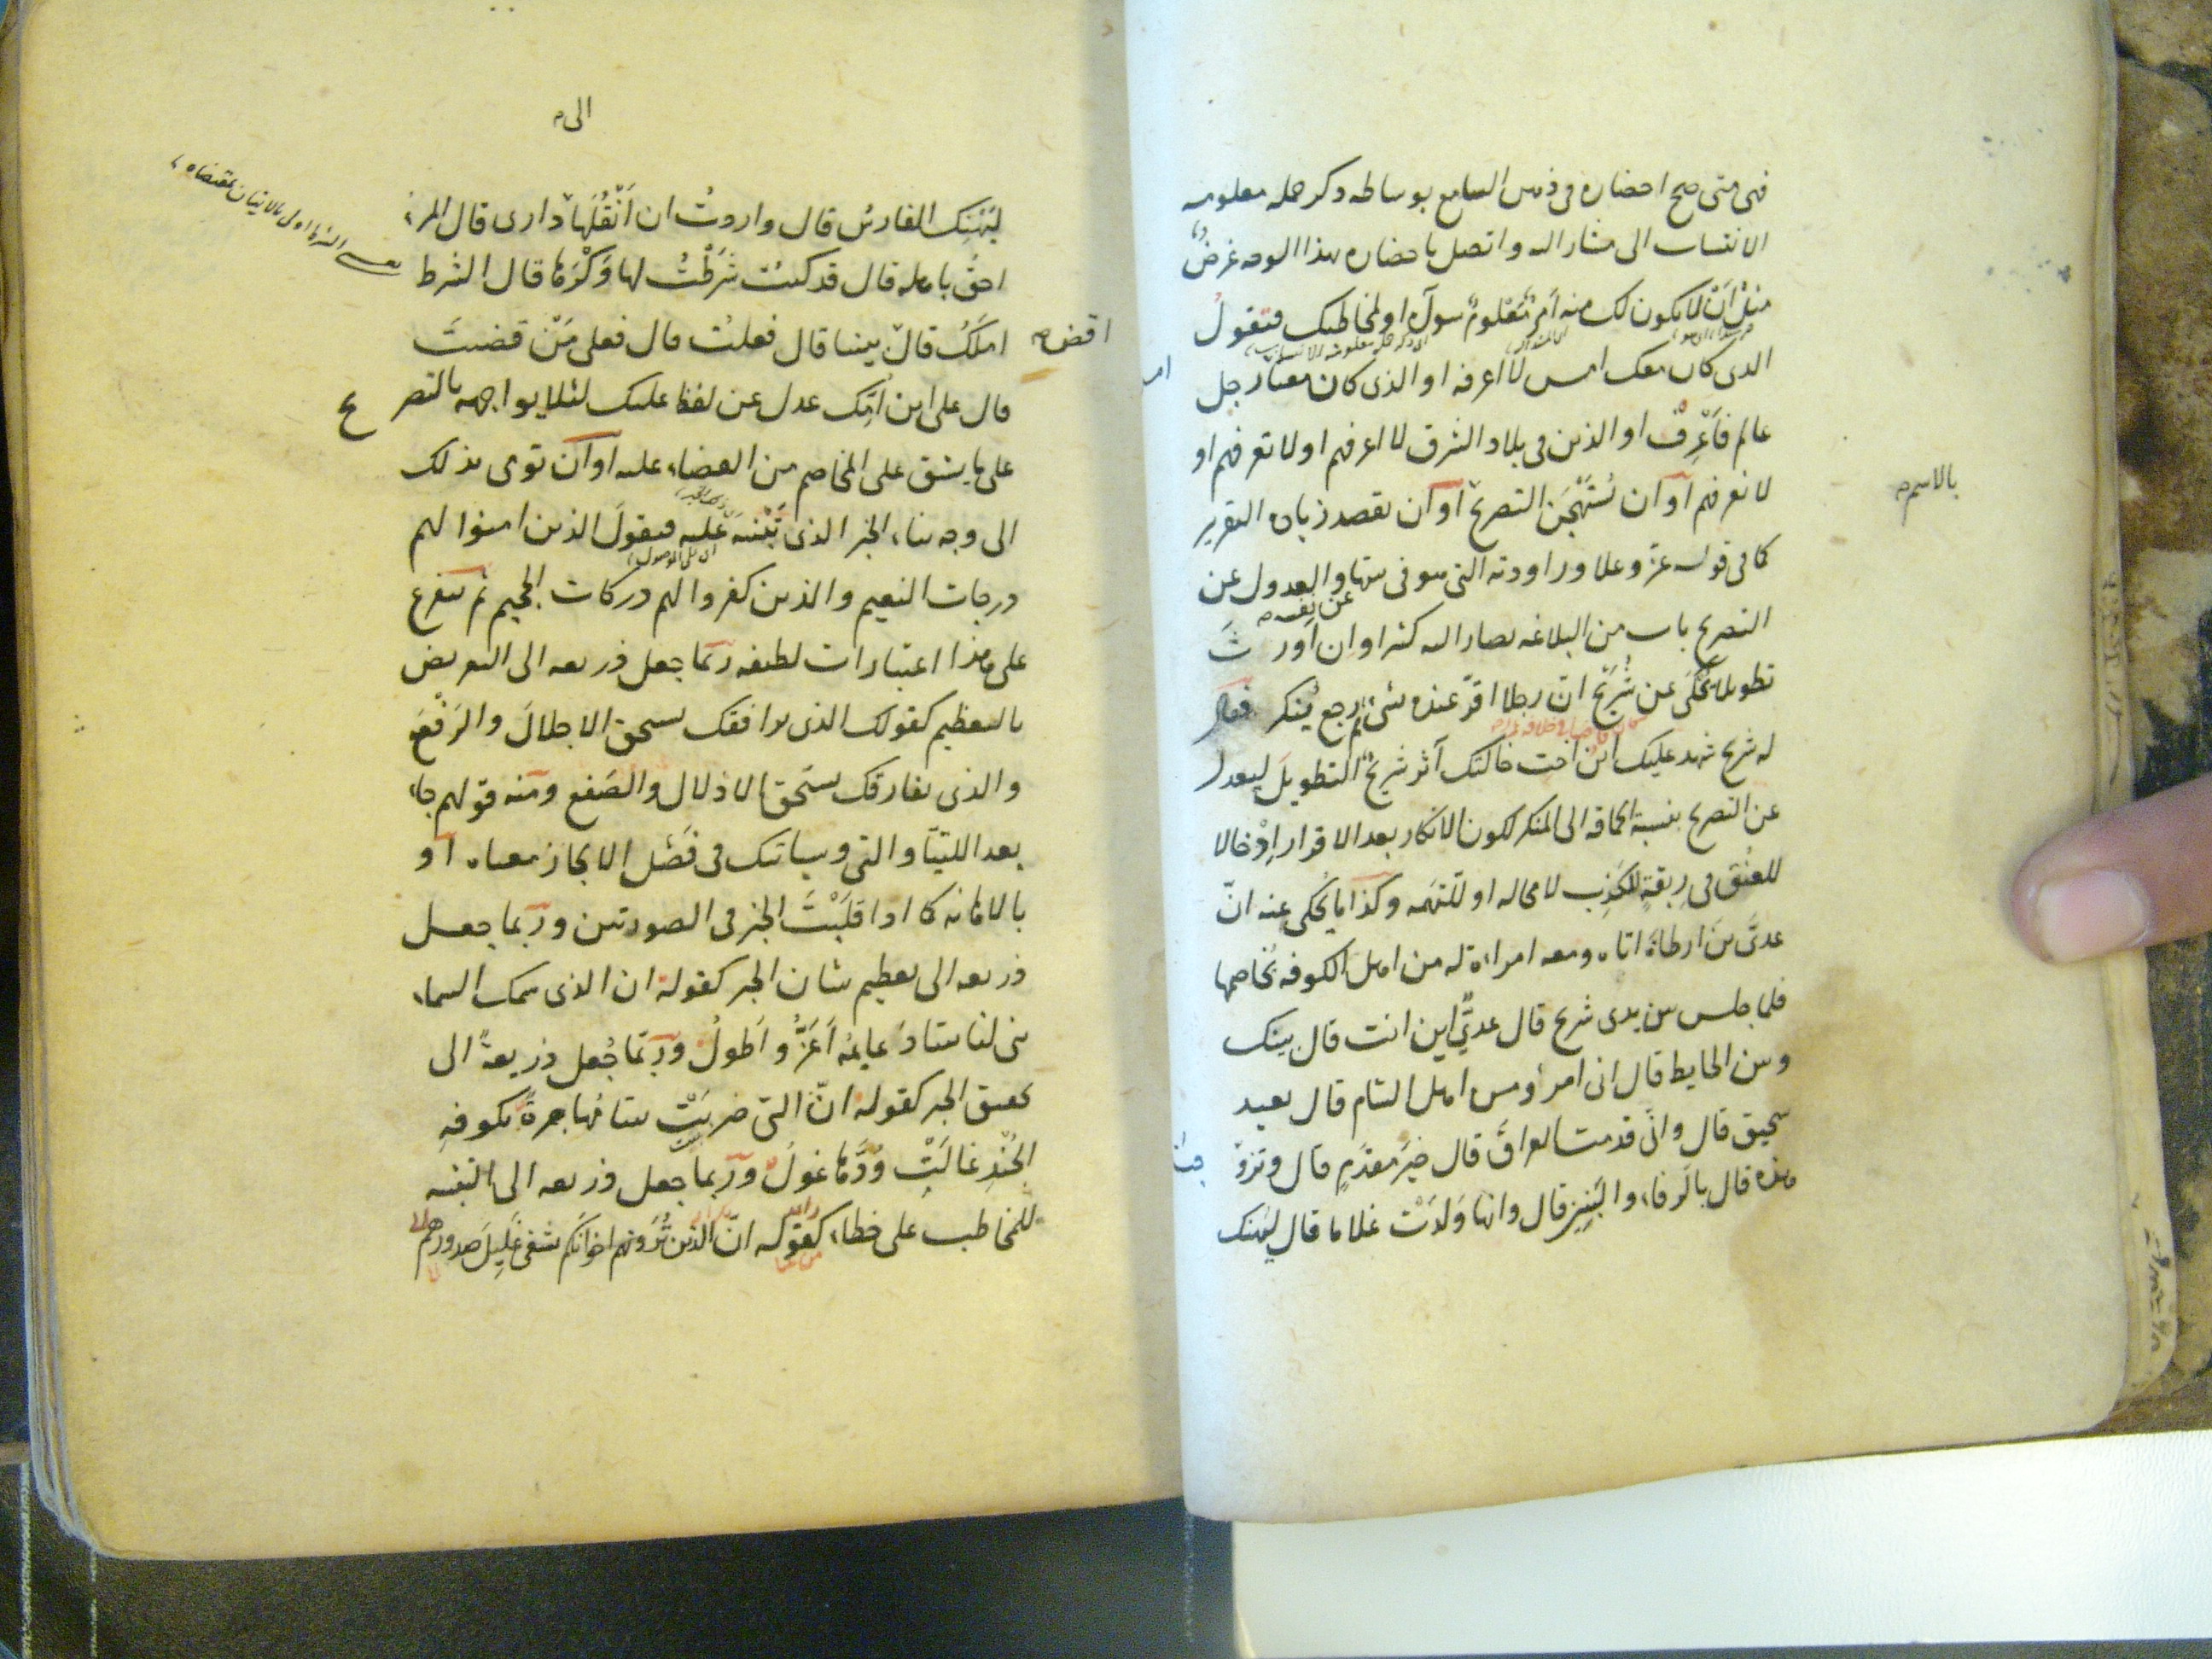 فهى متى صح احضاره فى ذهن السامع بوساطه ذكر جمله معلومه
الانتساب الى مشار اليه واتصل باحضاره بهذا الوجه غرض
مثل ان لا يكون لك منه امر معلوم سواه او لمخاطبك فتقول
الذى كان معك امس لا اعرفه او الذى كان معنا رجل
عالم فاعرف او الذين فى بلاد الشرق لا اعرفهم او لا تعرفهم او
لا نعرفهم او ان يستهجن التصريح او ان يقصد زياده التقرير
بالاسم
كما فى قوله عز وعلا وراودته التى هو فى بيتها والعدول عن
عن نفسه
التصريح باب من البلاغه يصار اليه كثيرا وان اورث
تطويلا يحكى عن شريح ان رجلا اقر عنده بشئ ثم رجع ينكر فقال
له شريح شهد عليك ابن اخت خالتك آثر شريح التطويل ليعدل
عن التصريح بنسبة الحماقه الى المنكر لكون الانكار بعد الاقرار ادخالا
للعنق فى ربقة الكذب لا محاله او للتهمه وكذا ما يحكى عنه ان
عدى بن ارطاة اتاه ومعه امراة له من اهل الكوفه يخاصمها
فلما جلس بين يدى شريح قال عدى اين انت قال بينك
وبين الحايط قال انى امرؤ من اهل الشام قال بعيد
سحيق قال وانى قدمت العراق قال خير مقدم قال وتزوجت
هذه قال بالرفاء والبنين قال وانها ولدت غلاما قال ليهنك
الى
ليهنك الفارس قال واردت ان انقلها دارى قال المرء
احق باهله قال قد كنت شرطت لها وكرها قال الشرط
املك قال بيننا قال فعلت قال فعلى من قضيت
اقض
قال على ابن امك عدل عن لفظ عليك لئلا يواجهه بالتصريح
على ما يشق على المخاصم من القضاء عليه او ان تومى بذلك
الى وجه بناء الخبر الذى تبنيه عليه فتقول الذين امنوا لهم
درجات النعيم والذين كفروا لهم دركات الجحيم ثم يتفرع
على هذا اعتبارات لطيفه ربما جعل ذريعه الى التعريض
بالتعظيم كقولك الذى يرافقك يستحق الاجلال والرفع
والذى يفارقك يستحق الاذلال والصفع ومنه قولهم جاء
بعد اللتيا والتى وسياتيك فى فصل الايجاز معناه او
بالاهانه كما اذا قلبت الخبر فى الصورتين وربما جعل
ذريعه الى تعظيم شان الخبر كقوله ان الذى سمك السماء
بنى لنا بيتا دعايمه اعز واطول وربما جعل ذريعة الى
تحقيق الخبر كقوله ان التى ضربت بيتا مهاجرة بكوفة
الجند غالت ودها غول وربما جعل ذريعه الى التنبيه
للمخاطب على خطاء كقوله ان الذين ترونهم اخوانكم يشفى غليل صدورهم